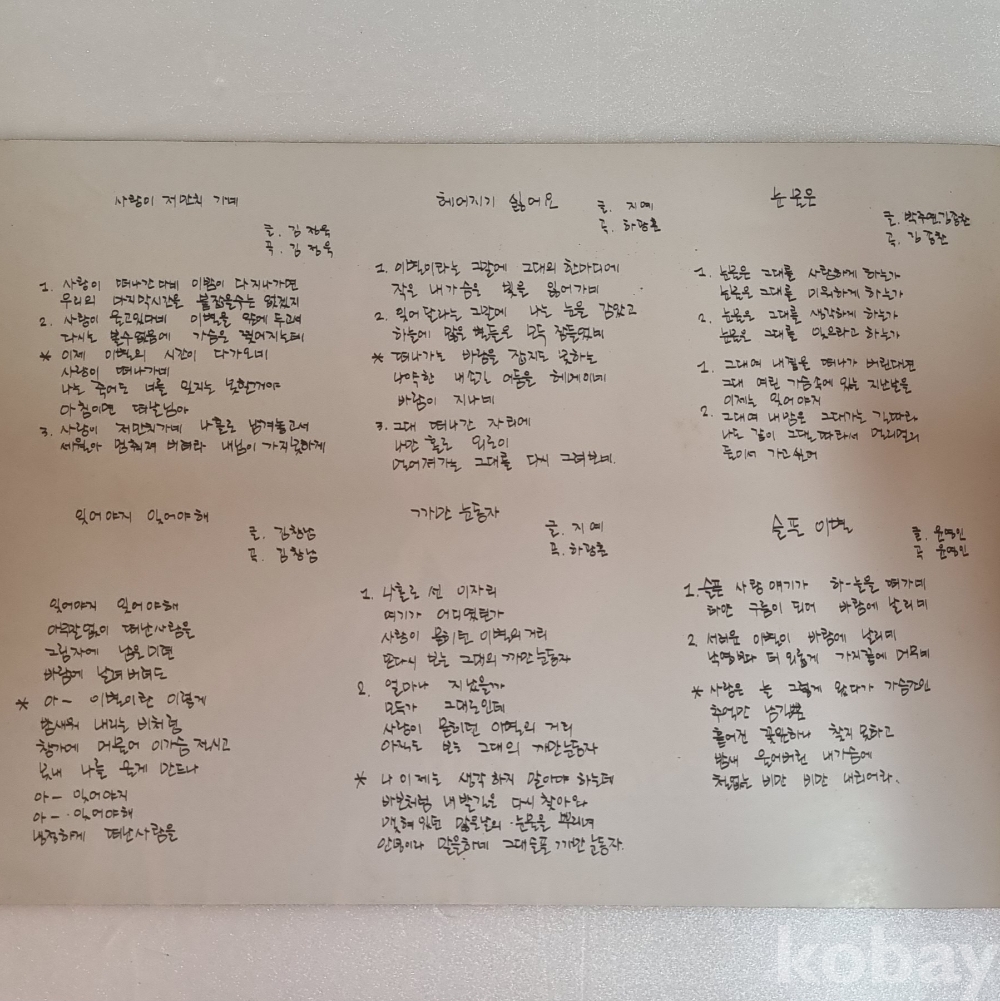 사랑이 저만치 가네
글. 김정욱
곡. 김정욱
1. 사랑이 떠나간다네 이밤이 다지나가면
우리의 마지막시간은 붙잡을수는 없겠지
2. 사랑이 울고있다네 이별을 앞에 두고서
다시는 볼수없음에 가슴은 찢어지는데
* 이제 이별의 시간이 다가오네
사랑이 떠나가네
나는 죽어도 너를 잊지는 못할거야
아침이면 떠날님아
3. 사랑이 저만치가네 나홀로 남겨놓고서
세월아 멈춰져 버려라 내님이 가지못하게
헤어지기 싫어요
글. 지예
곡. 하광훈
1. 이별이라는 그말에 그대의 한마디에
작은 내가슴은 빛을 잃어가네
2. 잊어달라는 그말에 나는 눈을 감았고
하늘에 많은 별들은 모두 잠들었네
* 떠나가는 바람을 잡지도 못하는
나약한 내손길 어둠을 헤메이네
바람이 지나네
3. 그대 떠나간 자리에
나만 홀로 외로이
멀어져가는 그대를 다시 그려보네.
눈물은
글. 박주연,김종찬
곡. 김종찬
1. 눈물은 그대를 사랑하게 하는가
눈물은 그대를 미워하게 하는가
2. 눈물은 그대를 생각하게 하는가
눈물은 그대를 잊으라고 하는가
1. 그대여 내곁을 떠나가 버린대면
그대 여린 가슴속에 있는 지난날을
이제는 잊어야지
2. 그대여 내맘은 그대가는 길따라
나도 같이 그대따라서 멀리멀리
둘이서 가고싶어
잊어야지 잊어야해
글. 김창남
곡. 김창남
잊어야지 잊어야해
아무말없이 떠난사람을
그림자에 남은미련
바람에 날려버려도
* 아- 이별이란 이렇게
밤새워 내리는 비처럼
창가에 머물어 이가슴 적시고
못내 나를 울게 만드나
아- 잊어야지
아- 잊어야해
냉정하게 떠난사람을
까만 눈동자
글. 지예
곡. 하광훈
1. 나홀로 선 이자리
여기가 어디였던가
사랑이 묻히던 이별의 거리
또다시 보는 그대의 까만눈동자
2. 얼마나 지났을까
모두가 그대로인데
사랑이 묻히던 이별의 거리
아직도 보는 그대의 까만눈동자
* 나 이제는 생각하지 말아야 하는데
바보처럼 내발길은 다시 찾아와
맺혀있던 많은날의 눈물을 뿌리며
안녕이라 말을하네 그대슬픈 까만눈동자.
슬픈 이별
글. 윤명인
곡 윤명인
1. 슬픈 사랑 얘기가 하-늘을 떠가네
하얀 구름이 되어 바람에 날리네
2. 서러운 이별이 바람에 날리네
낙엽보다 더 외롭게 가지끝에 머무네
* 사랑은 늘 그렇게 왔다가 가슴가린
추억만 남길뿐
흩어진 꽃잎하나 찾지 못하고
밤새 울어버린 내가슴에
철없는 비만 비만 내리어라.
kobay